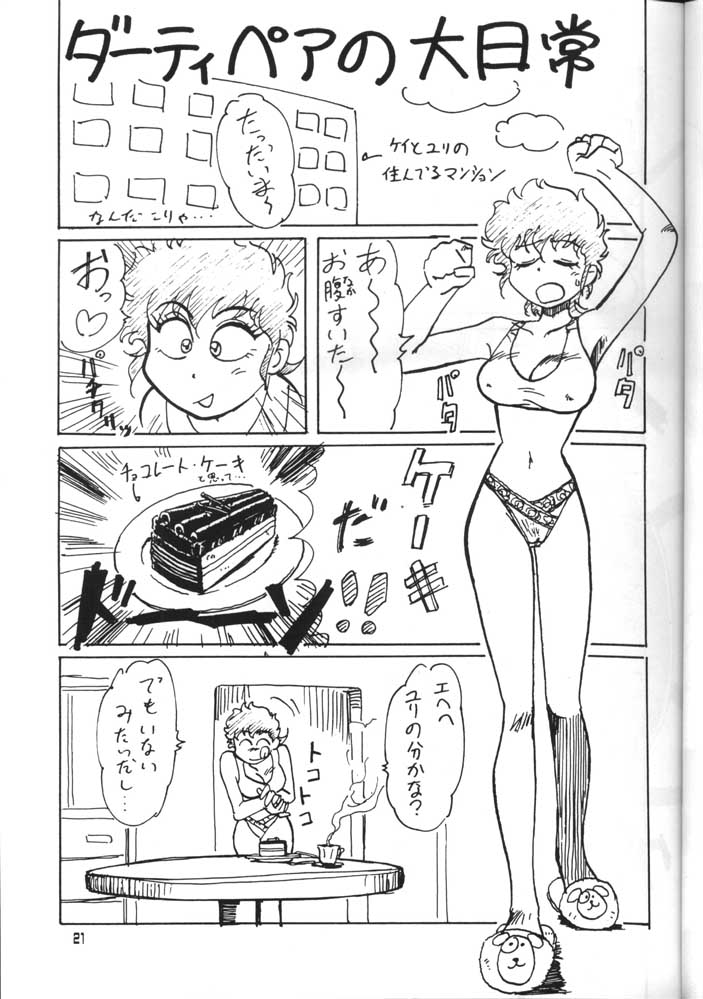 ダーティペアの大日常
たっだいま〜
ケイとユリの
住んでるマンション
なんだこりゃ…
あ〜〜〜
お腹すいた〜〜
なか
パタ
パタ
おっ♡
パタパタッ
ケーキ
だ!!
チョコレート・ケーキ
と思って…
ドーン
エヘヘ
ユリの分かな?
トコ
トコ
でもいない
みたいだし…
21